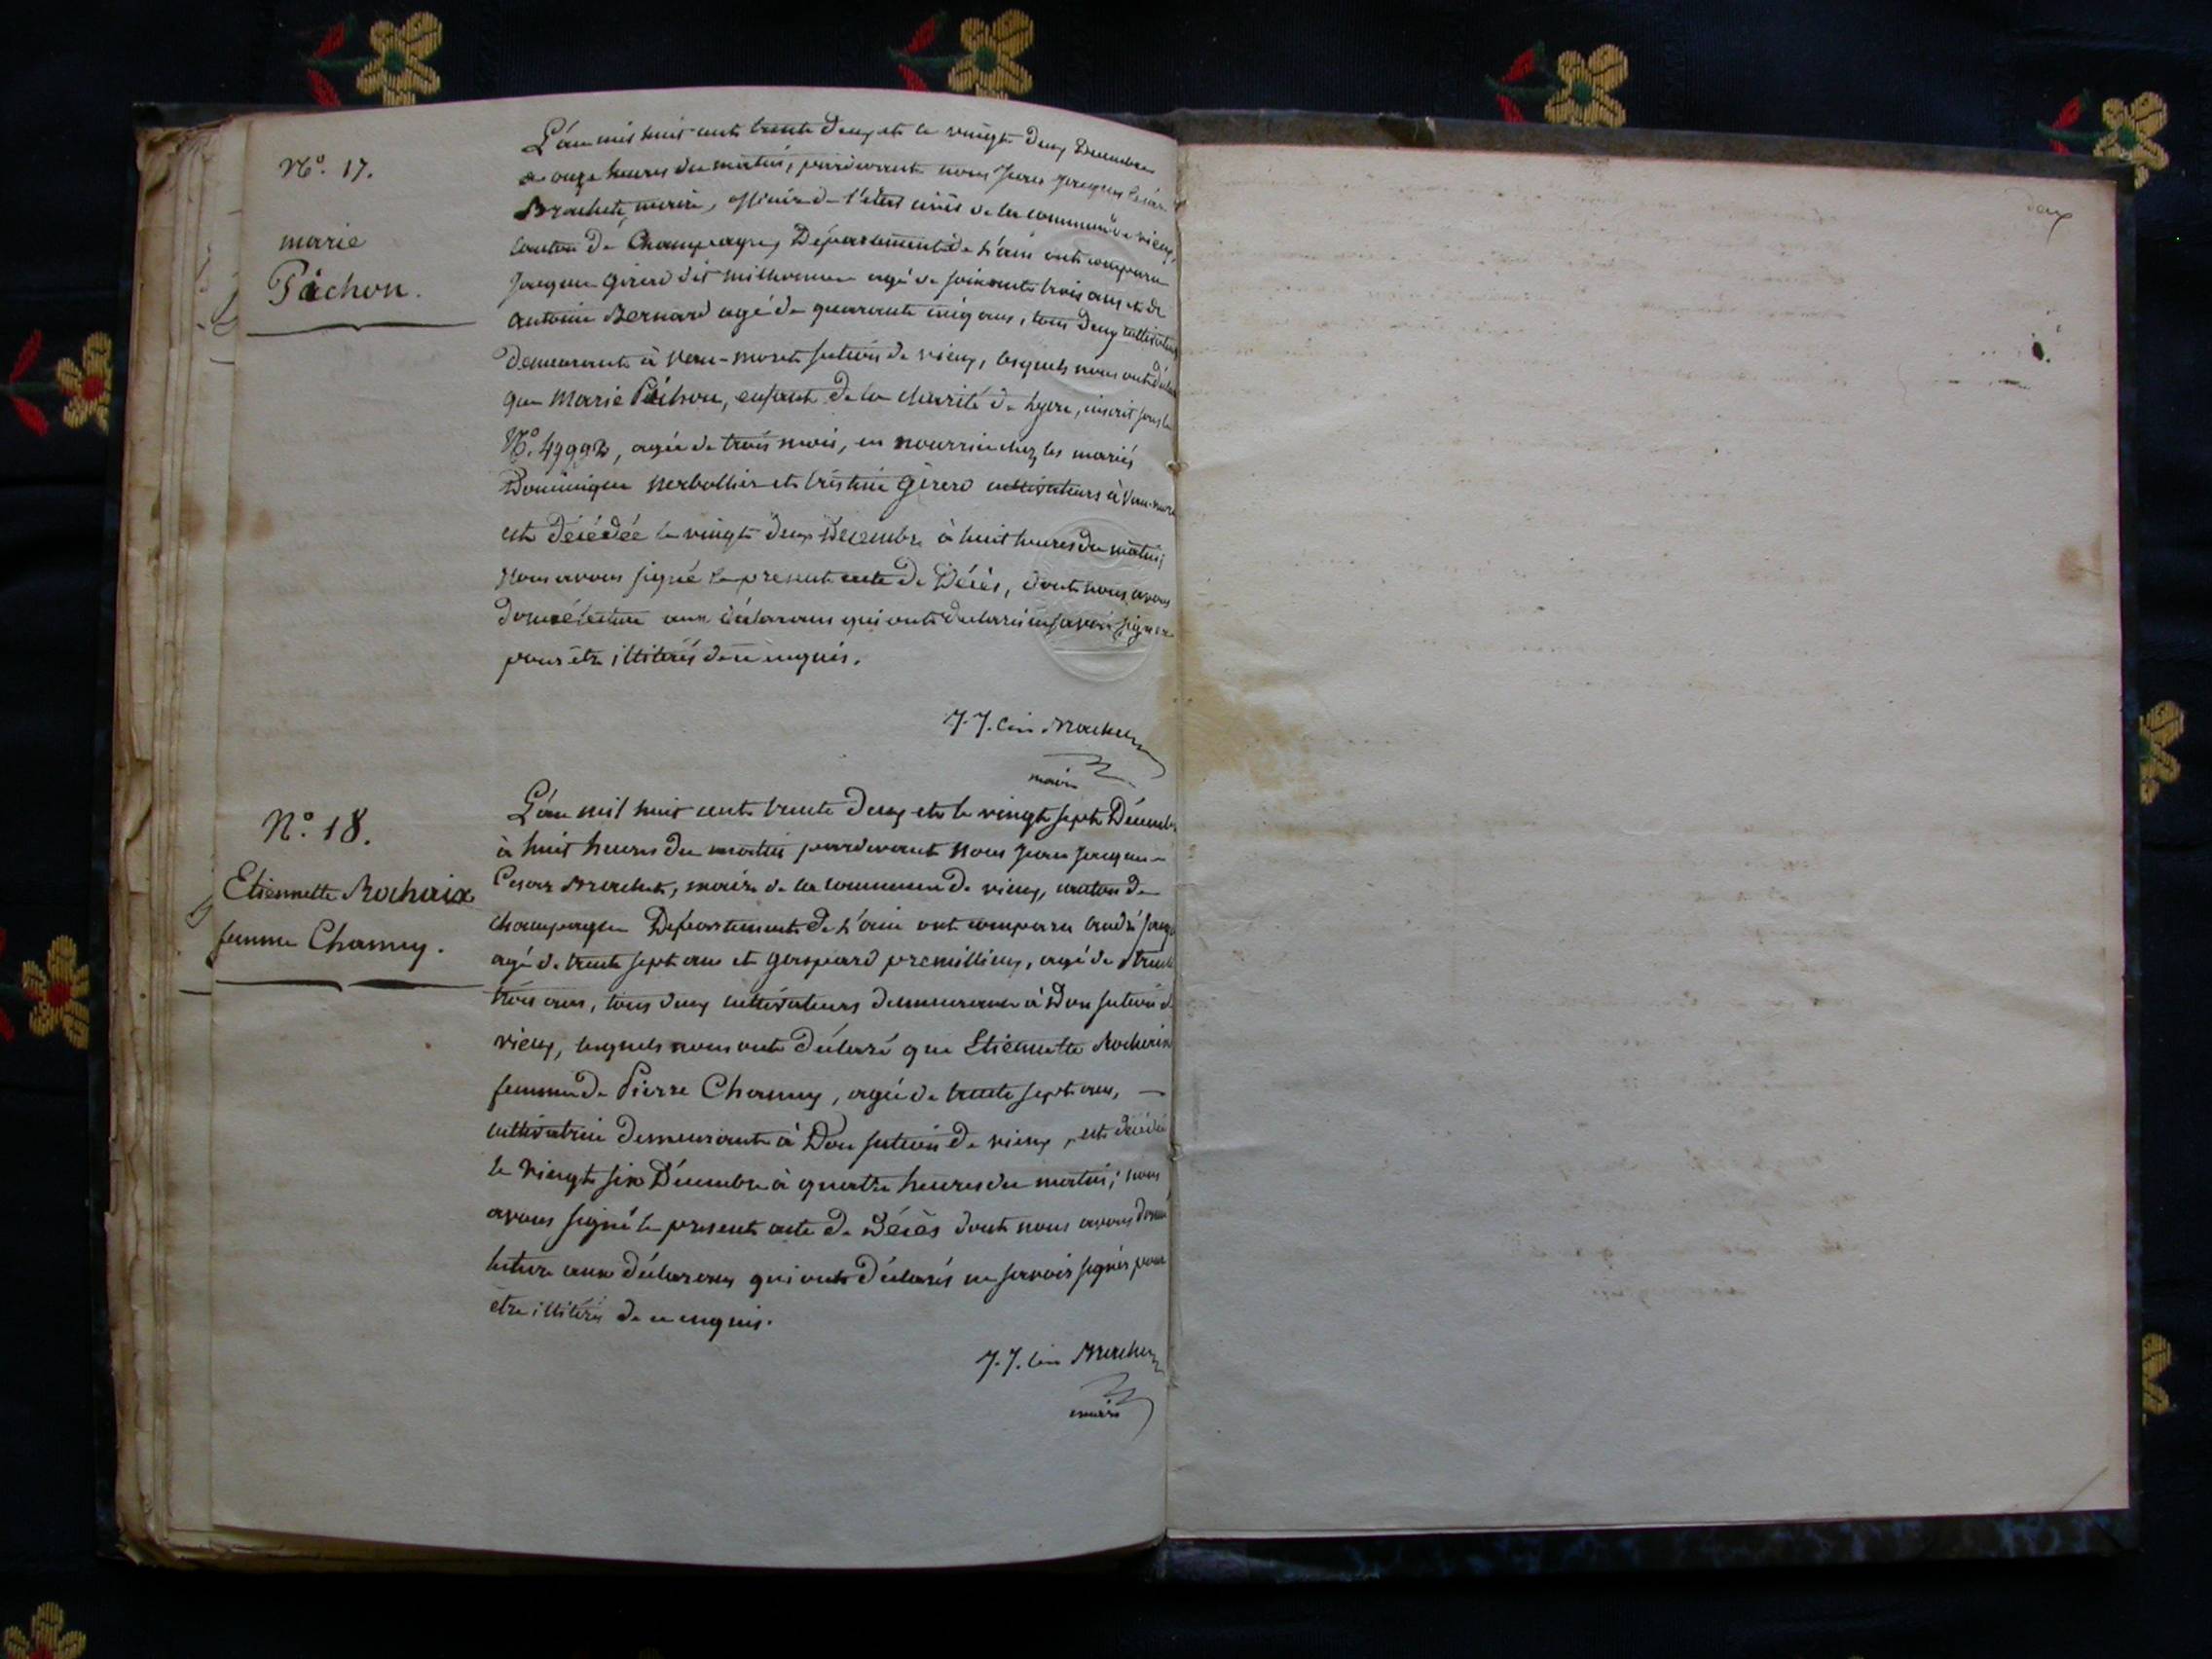 N.o 17.
marie
Pächon.
L'an mil huit cent trente deux et le vingt deux Decembre
a onze heures du matin, pardevant nous Jean Jacques César
Brochet, maire, officier de l'état civil de la commune de vieux,
canton de Champagne, Département de L'ain ont comparu
Jacques Girerd dit milhomme agé de soixante trois ans et de
Antoine Bernard agé de quarante cinq ans, tous deux cultivateurs
demeurants à Vau-moret section de vieux, lesquels nous ont déclaré
que Marie Pächon, enfant de la charité de Lyon, inscrit sous le
N.o 49992, agée de trois mois, en nourrice chez les mariés
Dominique Nerbollier et Cristine Girerd cultivateurs à Vau-moret
est décédée le vingt deux Décembre à huit heures du matin;
Nous avons signé le present acte de Décès, dont nous avons
donné lecture aux déclarans qui ont déclarés ne savoir signer
pour être illiterés de ce enquis.
J. J. César Brochet
maire
N.o 18.
Etiennette Rochaix
femme Chamuy.
L'an mil huit cent trente deux et le vingt sept Décembre
à huit heures du matin pardevant Nous Jean Jacques
Cesar Brochet, maire de la commune de vieux, canton de
champagne Département de L'ain ont comparu André
agé de trente sept ans et Gaspard premillieux, agé de trente
trois ans, tous deux cultivateurs demeurants à Don section de
vieux, lesquels nous ont déclaré que Etiennette Rochaix
femme de Pierre Chamuy, agée de trente sept ans,
cultivatrice demeurante à Don section de vieux, est décédée
le vingt six Décembre à quatre heures du matin; nous
avons signé le present acte de Décès dont nous avons donné
lecture aux déclarans qui ont déclarés ne savoir signer pour
etre illiterés de ce enquis.
J. J. César Brochet
maire